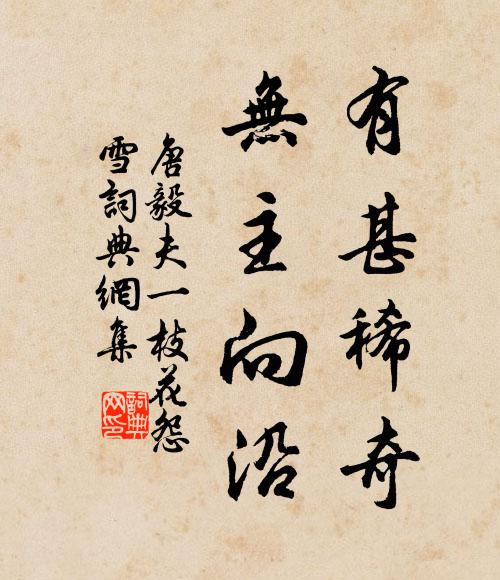 有甚稀奇
無主向沿
唐毅夫一枝花怨
雪詞典網集
詞典
网印